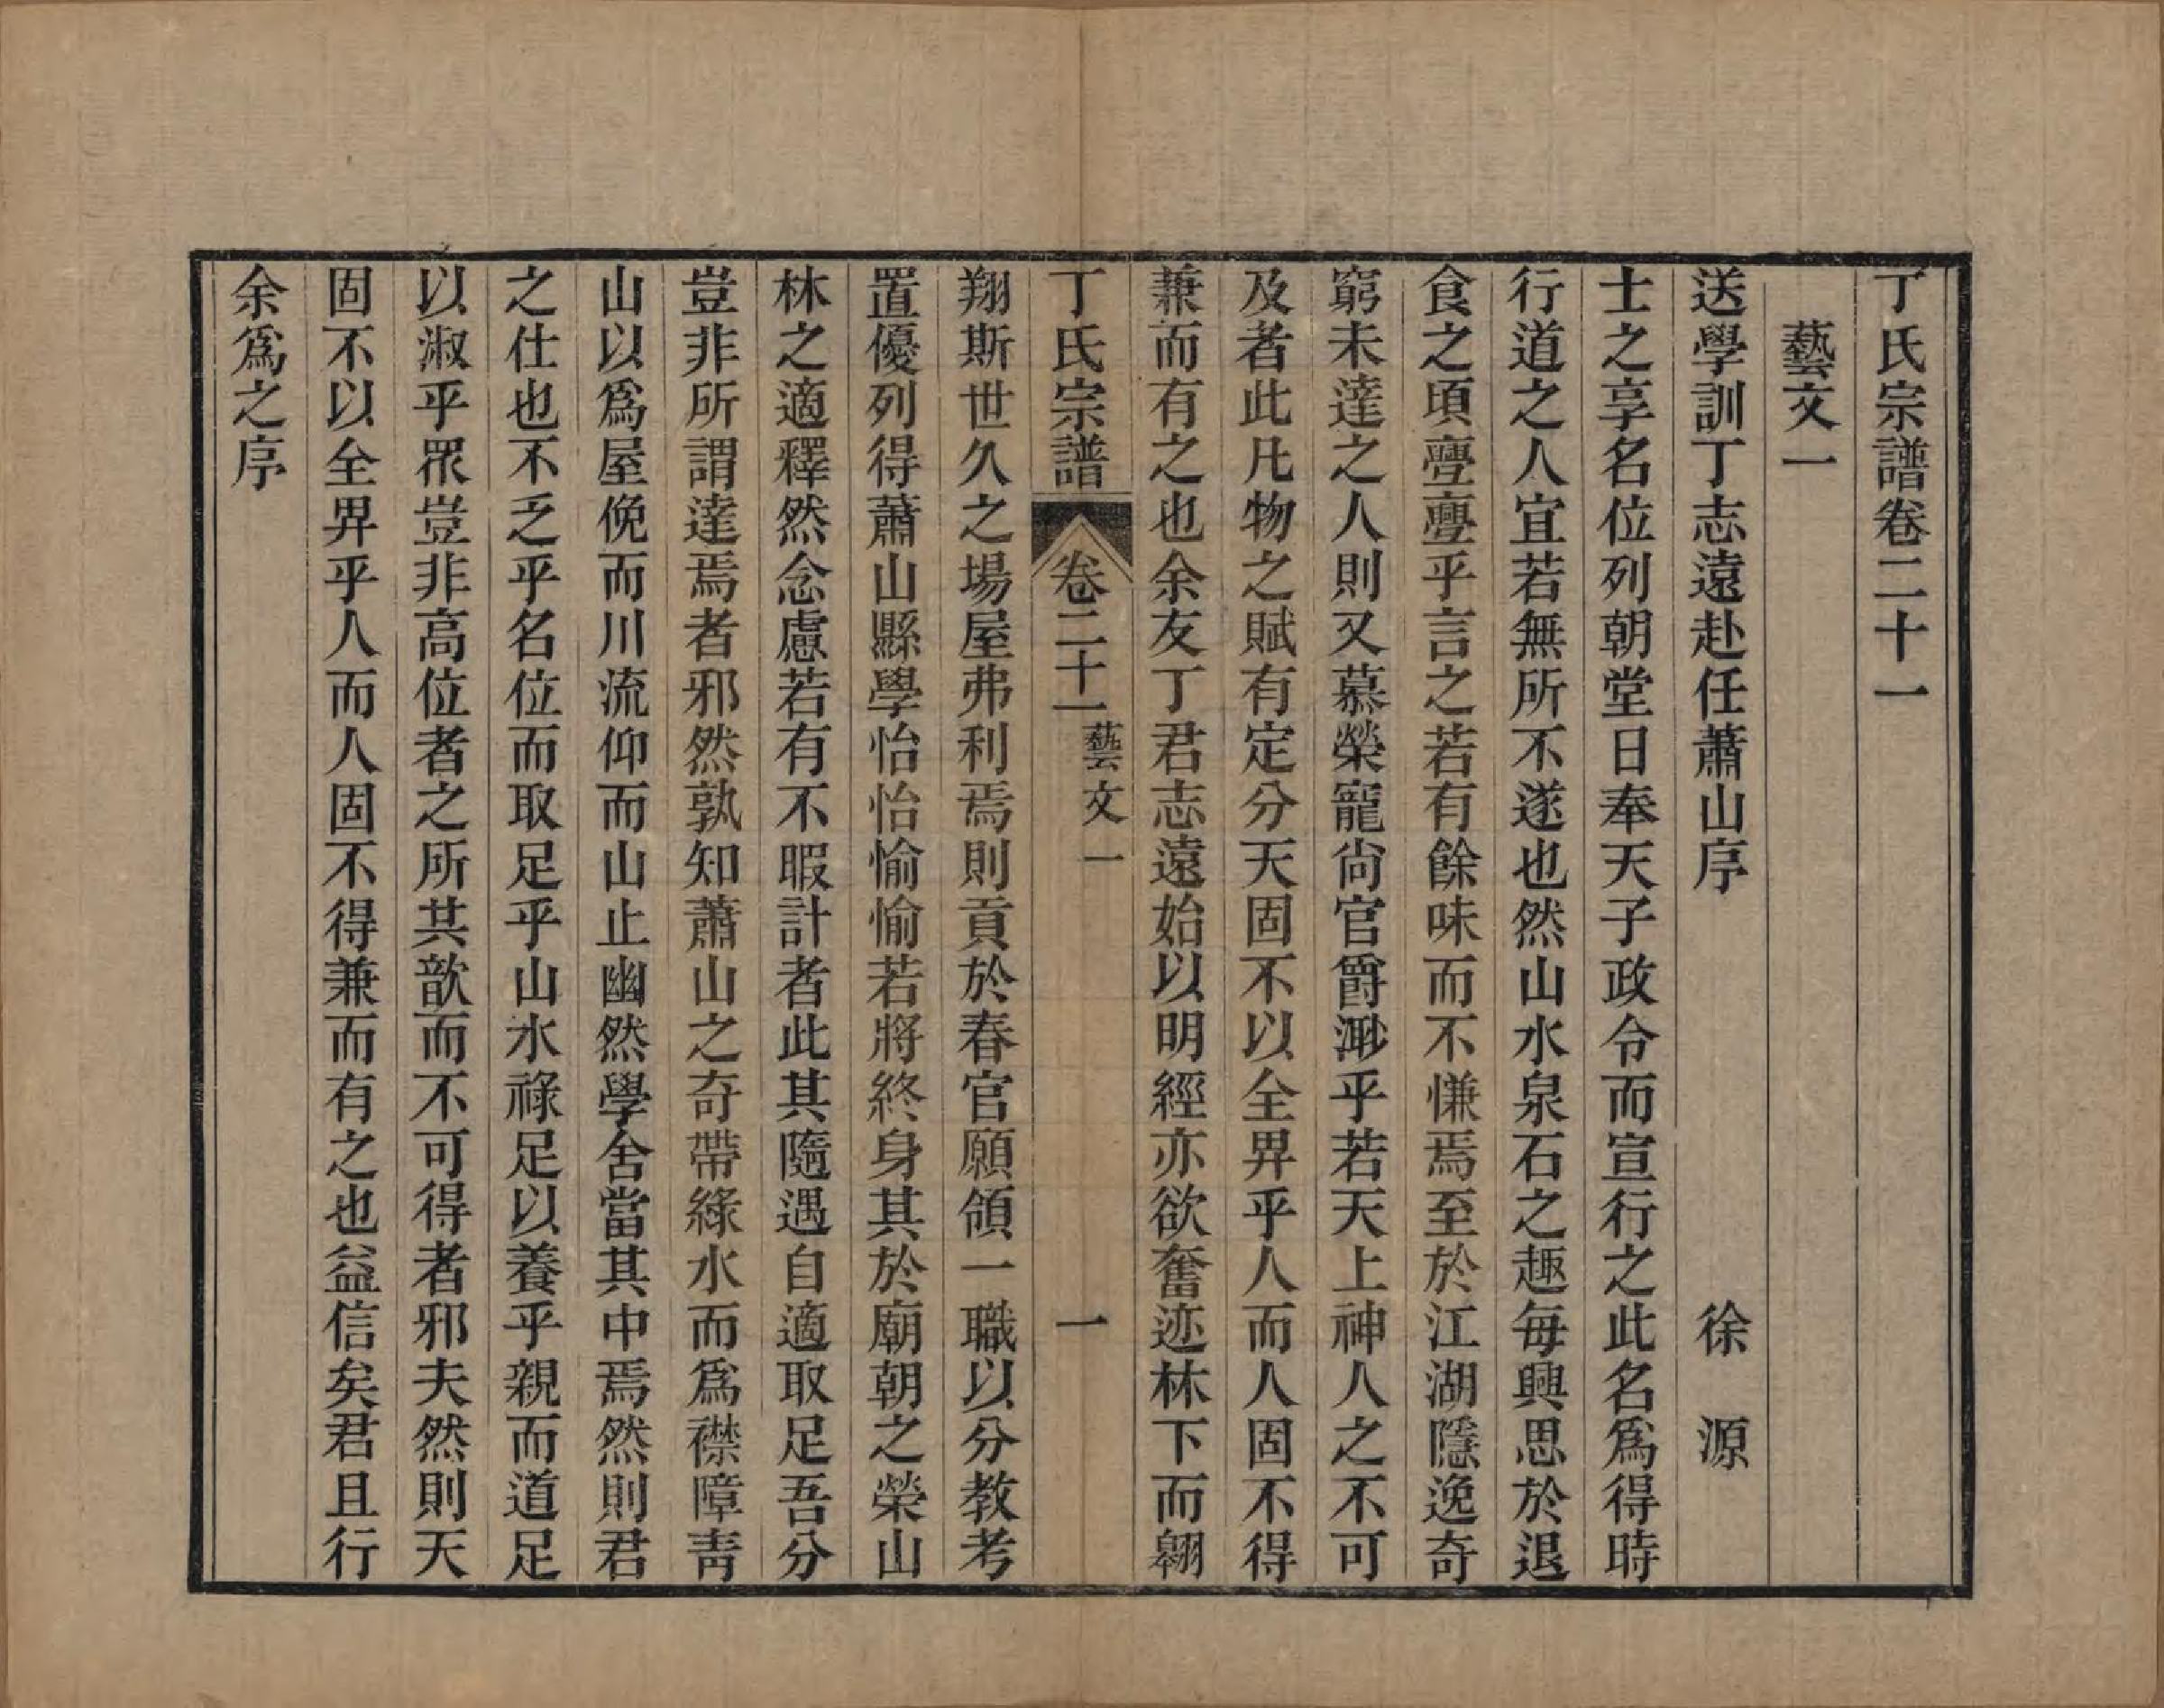 丁氏宗譜卷二十一
藝文一
送學訓丁志遠赴任蕭山序 徐源
士之享名位列朝堂日奉天子政令而宣行之此名爲得時
行道之人宜若無所不遂也然山水泉石之趣每興思於退
食之頃亹亹乎言之若有餘味而不慊焉至於江湖隱逸奇
窮未達之人則又慕榮寵尚官爵渺乎若天上神人之不可
及者此凡物之賦有定分天固不以全畀乎人而人固不得
兼而有之也余友丁君志遠始以明經亦欲奮迹林下而翱
丁氏宗譜 卷二十一 藝文一 一
翔斯世久之場屋弗利焉則貢於春官願領一職以分教考
置優列得蕭山縣學怡怡愉愉若將終身其於廟朝之榮山
林之適釋然念慮若有不暇計者此其隨遇自適取足吾分
豈非所謂達焉者邪然孰知蕭山之奇帶綠水而爲襟障靑
山以爲屋俛而川流仰而山止幽然學舍當其中焉然則君
之仕也不乏乎名位而取足乎山水祿足以養乎親而道足
以淑乎眾豈非高位者之所其歆而不可得者邪夫然則天
固不以全畀乎人而人固不得兼而有之也益信矣君且行
余爲之序